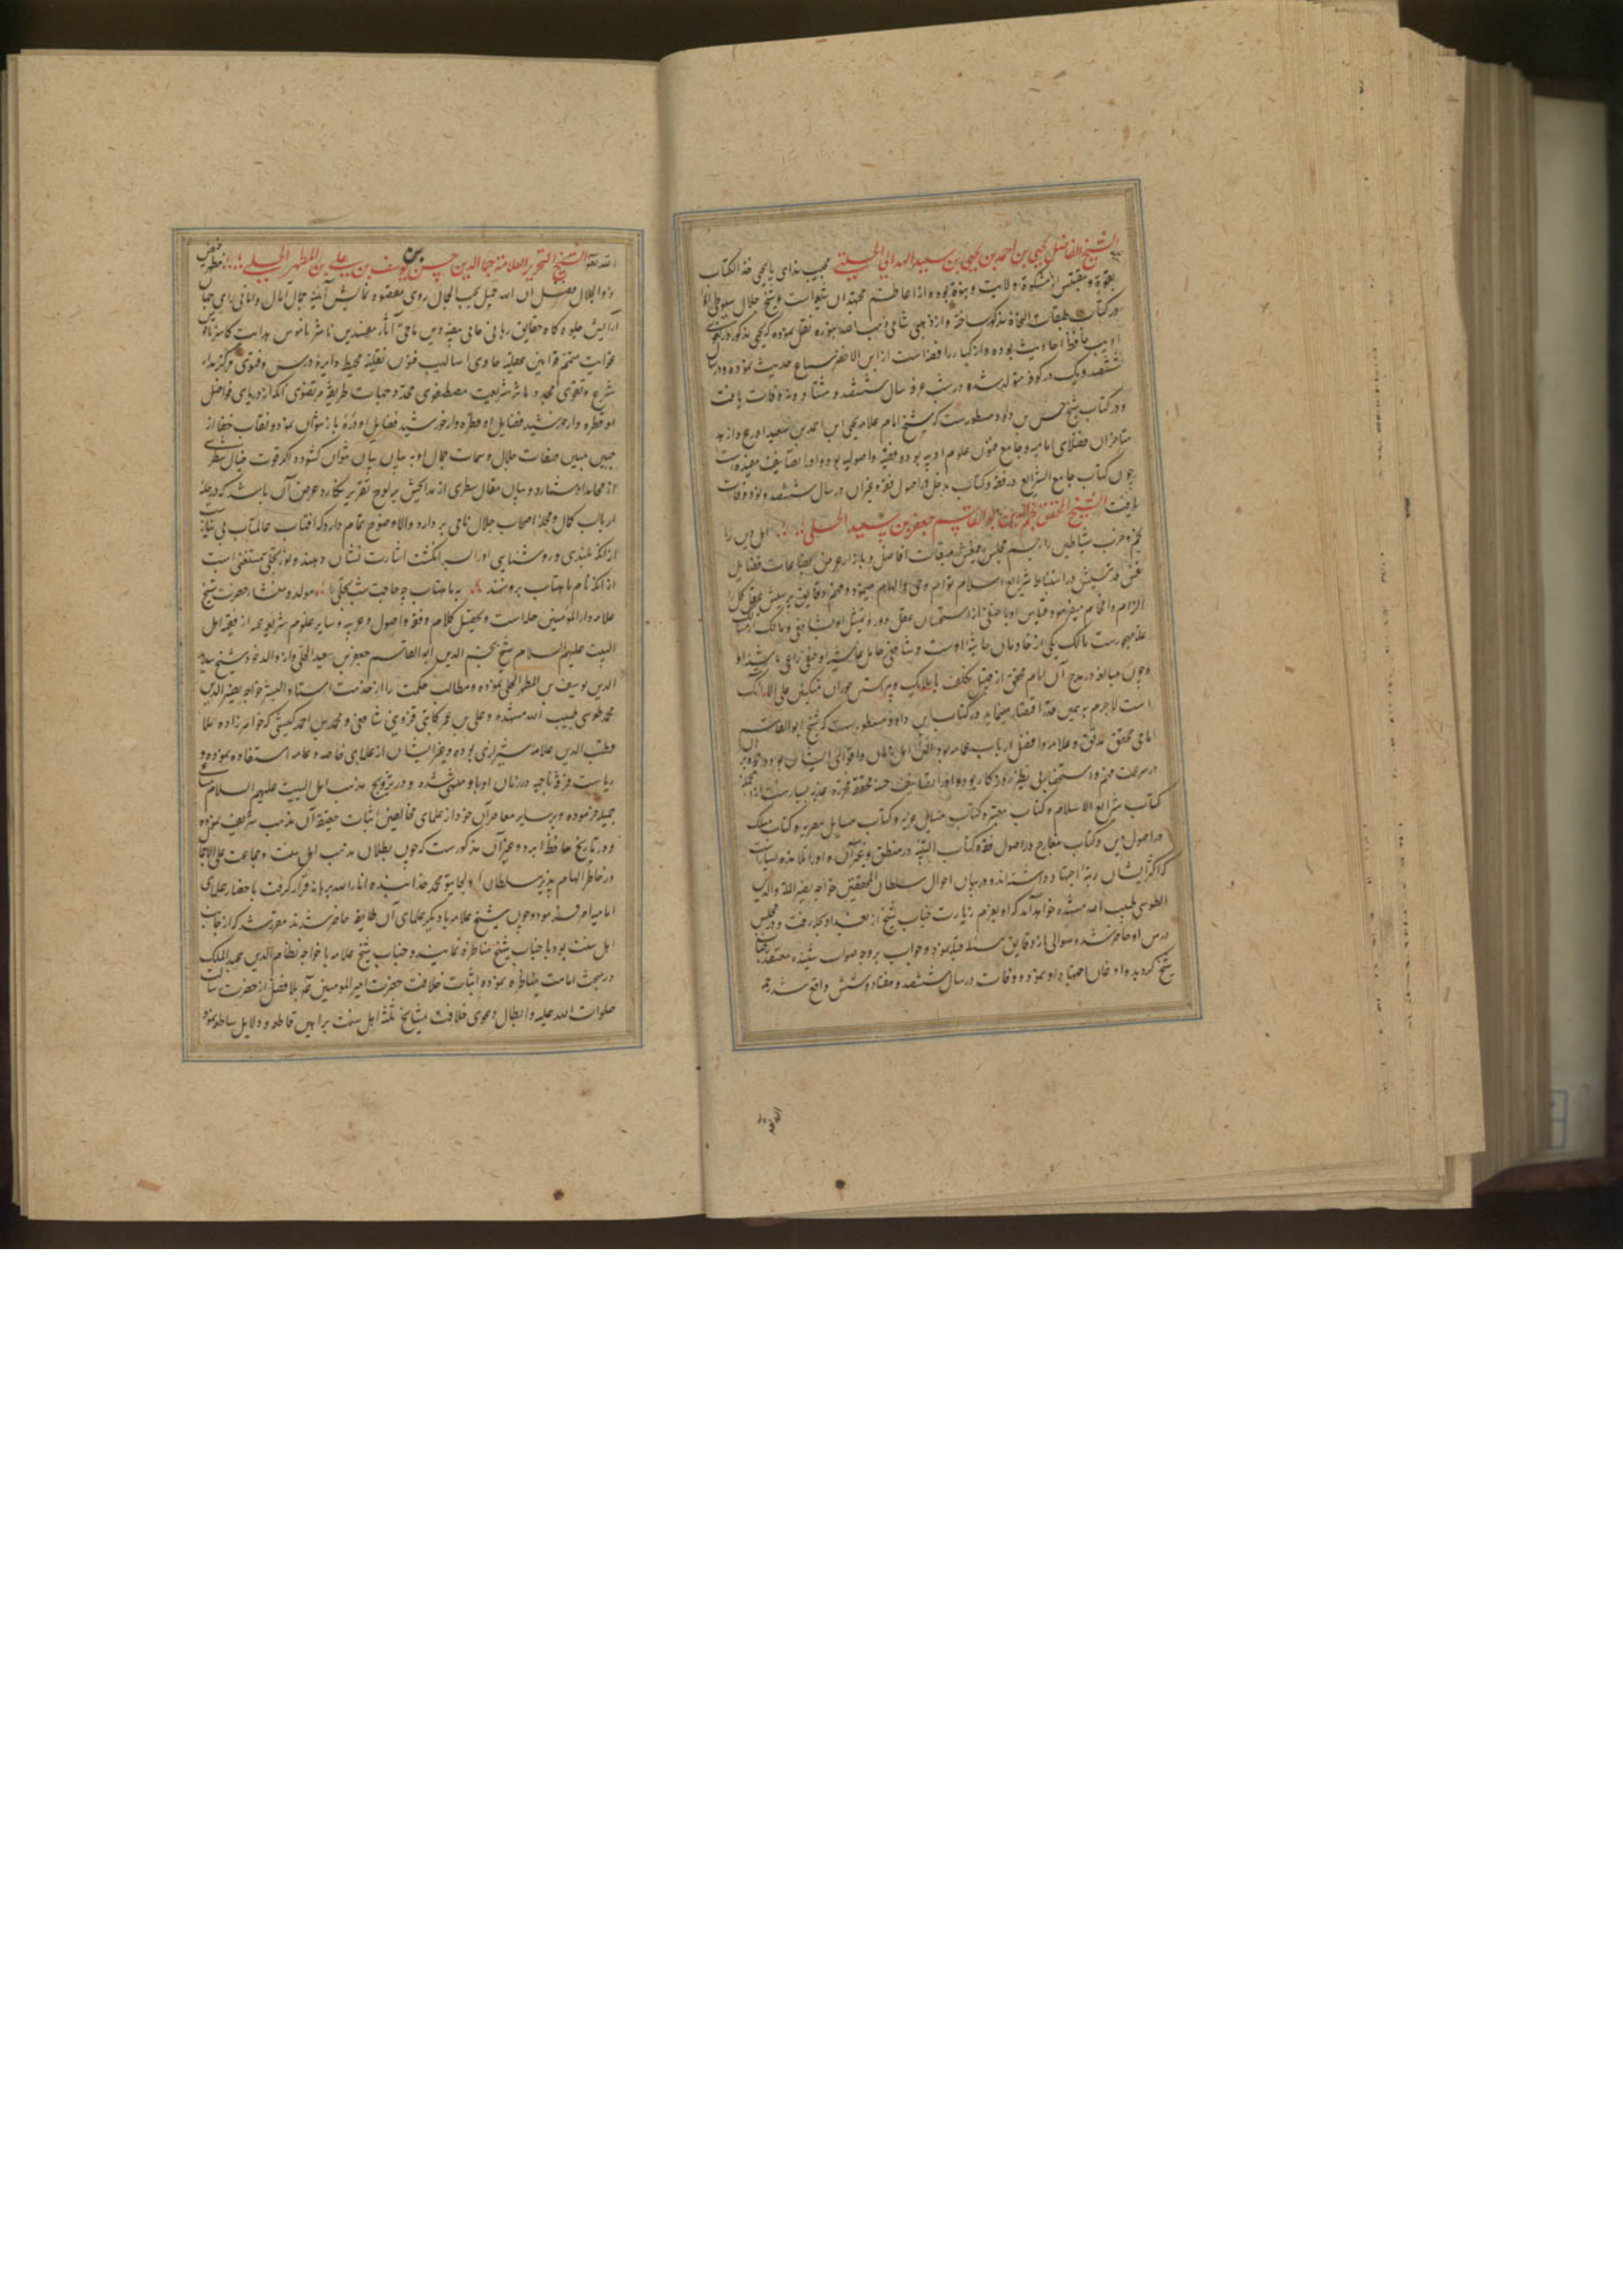 الشیخ الفاضل یحیی بن احمد بن یحیی بن سعید الهذلی الحلی مجیب ندای یا یحیی خذ الکتاب
بقوة و مقتبس از مشکوة ولایت و نبوة بوده از اعاظم مجتهدان شیعه است و شیخ جلال سیوطی او را
در کتاب طبقات النحاة مذکور ساخته و از ذهبی شامی نقل نموده که یحیی مذکور لغوی
ادیب حافظ احادیث بوده و از کبار رافضه است از ابن الاخضر سماع حدیث نموده و در سال
ششصد و یک در کوفه متولد شده و در شب عرفه سال ششصد و هشتاد و نه وفات یافت
و در کتاب شیخ حسن بن داود مسطور است که شیخ امام علامه یحیی ابن احمد بن سعید اورع و ازهد
متاخران فضلای امامیه و جامع فنون علوم ادبیه بود و فقیه و اصولیه بود و او را تصانیف مفیده است
چون کتاب جامع الشرایع در فقه و کتاب مدخل در اصول فقه و غیر آن در سال ششصد و نود وفات
یافت الشیخ المحقق نجم الدین ابو القاسم جعفر بن سعید الحلی اهل دین را
نجم و حزب شیاطین را رجم مجلس
نفس قدسیش در استنباط شرایع اسلام توام وحی و الهام مینمود و فهم دقایق
الزام و افحام میفرمود و قیاس او با حنفی از استحسان عقل دور و تمثیل او بشافعی و مالک از مسالک
علم مهجور است مالک یکی از خادمان حاشیه اوست و شافعی حامل غاشیه او حنفی
و چون مبالغه در مدح آن امام محقق از قبیل تکلف
است لاجرم بر همین قدر اقتصار مینماید در کتاب ابن داود مسطور است که شیخ ابو القاسم
امامی محقق مدقق و علامه و افضل ارباب محامد بود و افقه اهل زمان و اقوای ایشان بود
در سرعت فهم و استحضار بی نظیر روزگار بوده او را تصانیف حسنه محققه محرره عذبه بسیار است از آنجمله
کتاب شرایع الاسلام و کتاب معتبر و کتاب مسایل عزیه و کتاب مسایل مصریه و کتاب مسلک
در اصول دین و کتاب معارج در اصول فقه و کتاب در منطق و غیر آن و او را تلامذه بسیار است
که اکثر ایشان رتبه اجتهاد داشته اند و در بیان احوال سلطان المحققین خواجه نصیر الملة والدین
الطوسی طیب الله مشهده خواهد آمد که او بعزم زیارت جناب شیخ از بغداد بحله رفت و در مجلس
درس او حاضر شد و سوالی از دقایق مسئله قبله نمود و جواب بر وجه صواب شنیده معتقد
شیخ گردید و اذعان اجتهاد او نمود و وفات در سال ششصد و هفتاد و شش واقع شد رحمه
الله تعالی الشیخ النحریر العلامة جمال الدین حسن بن یوسف بن علی بن المطهر الحلی مظهر فیض
ذو الجلال مظهر فضل ان الله جمیل یحب الجمال روی معقود نمایش آئینه جمال امان و امانی رای جهان
آرایش جلوه گاه حقایق ربانی حامی بیضه دین ماحی آثار مفسدین ناشر ناموس هدایت کاسر ناقوس
غوایت متمم قوانین عقلیه حاوی اسالیب فنون نقلیه محیط دایره درس و فتوی مرکز مدار
شرع و تقوی مجدد ماثر شریعت مصطفوی محدد جهات طریقه مرتضوی آنکه از دریای فواضل
او قطره و از خورشید فضایل او ذره باز نتوان نمود و نقاب خفا از
جبین مبین صفات جلال و سمات جمال او به بنان بیان نتوان گشود و اگر قوت خیال سطری
از محامد او شمارد و بیان مقال سطری از مدایحش بر لوح تقریر نگارد و غرض آن باشد که در جمله
ارباب کمال و مجله اصحاب جلال نامی بر دارد والا وضوح تمام دارد که افتاب عالمتاب بی نیاز
از آنکه بلندی و روشنایی او را بسر انگشت اشارت نشان دهند و نور تجلی مستغنی است
از آنکه نام ماهتاب برو نهند به ماهتاب چه حاجت شب تجلی را مولد و منشاء حضرت شیخ
علامه دار المؤمنین حله است و تحصیل کلام و فقه و اصول و عربیه و سایر علوم شرعیه از فقیه اهل
البیت علیهم السلام شیخ نجم الدین ابو القاسم جعفر بن سعید الحلی و از والد خود شیخ سدید
الدین یوسف بن المطهر الحلی نموده و مطالب حکمت را از خدمت استاد البشر خواجه نصیر الدین
محمد طوسی طیب الله مشهده و علی بن عمر کاتبی قزوینی شافعی و محمد بن احمد کیشی که خواهرزاده ملا
قطب الدین علامه شیرازی بوده و غیر ایشان از علمای خاصه و عامه استفاده نموده و
ریاست فرقه ناجیه در زمان او باو منتهی شده و در ترویج مذهب اهل البیت علیهم السلام مساعی
جمیله فرموده و بر سایر معاصران خود از علمای مخالفین اثبات حقیقت آن مذهب شریف نموده
و در تاریخ حافظ ابرو و غیر آن مذکور است که چون بطلان مذهب اهل سنت و جماعت علی الاجمال
در خاطر الهام پذیر سلطان اولجایتو محمد خدابنده انار الله برهانه قرار گرفت باحضار علمای
امامیه امر فرمود و چون شیخ علامه با دیگر علمای آن طایفه حاضر شدند مقرر شد که از جانب
اهل سنت بودند با جناب شیخ مناظره نمایند و جناب شیخ علامه با خواجه نظام الدین عبد الملک
در مبحث امامت مناظره نموده اثبات خلافت حضرت امیر المومنین ع بلا فصل از حضرت رسالت
صلوات الله علیه و ابطال دعوی خلافت مشایخ ثلثه اهل سنت براهین قاطع و دلایل ساطع نمود